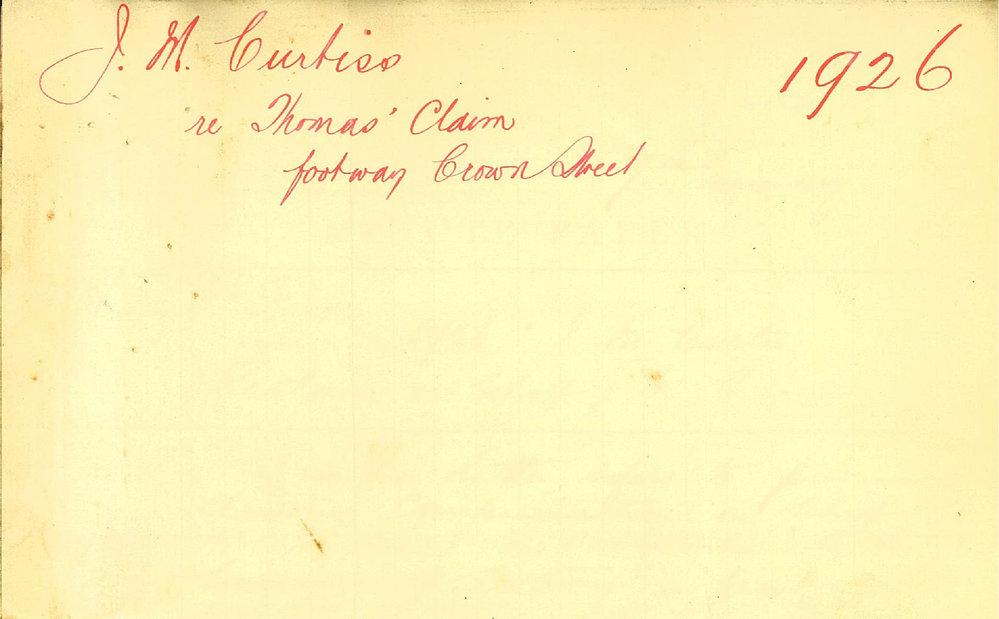 J. M. Curtiss
1926
re Thomas' Claim
footway Crown Street